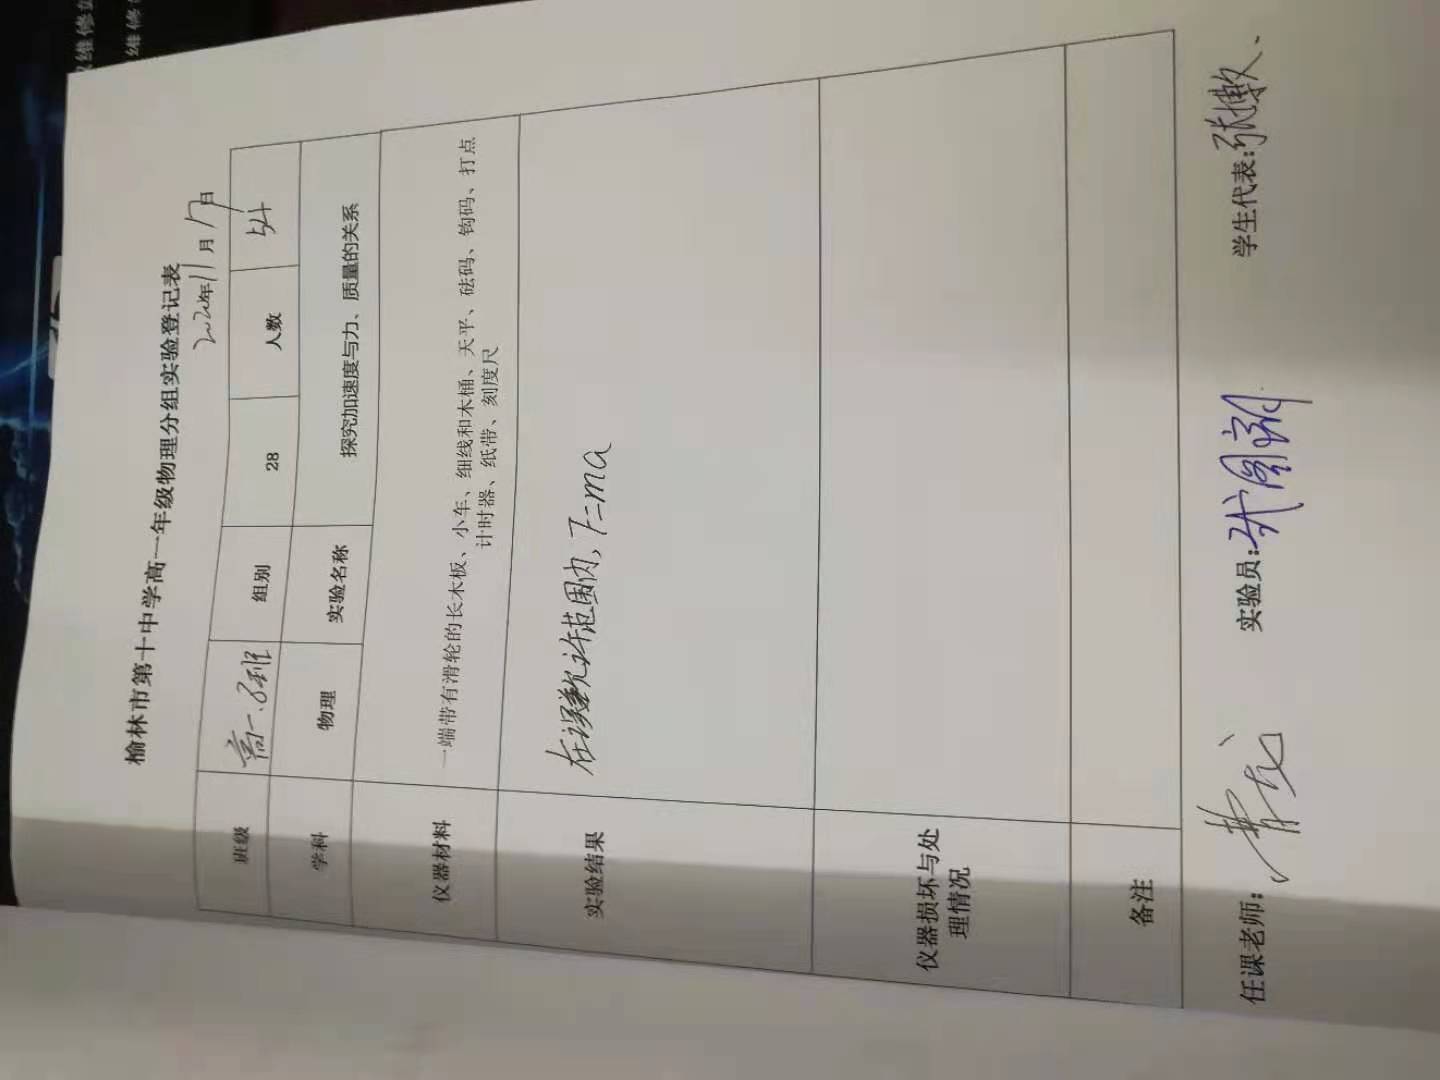 榆林市第十中学高一年级物理分组实验登记表
年11月17日
班级 高一.8班 组别 28 人数 54
学科 物理 实验名称 探究加速度与力、质量的关系
仪器材料 一端带有滑轮的长木板、小车、细线和木桶、天平、砝码、钩码、打点
计时器、纸带、刻度尺
实验结果 在误差允许范围内, F=ma
仪器损坏与处
理情况
备注
任课老师: 实验员: 学生代表:张
维修
维修